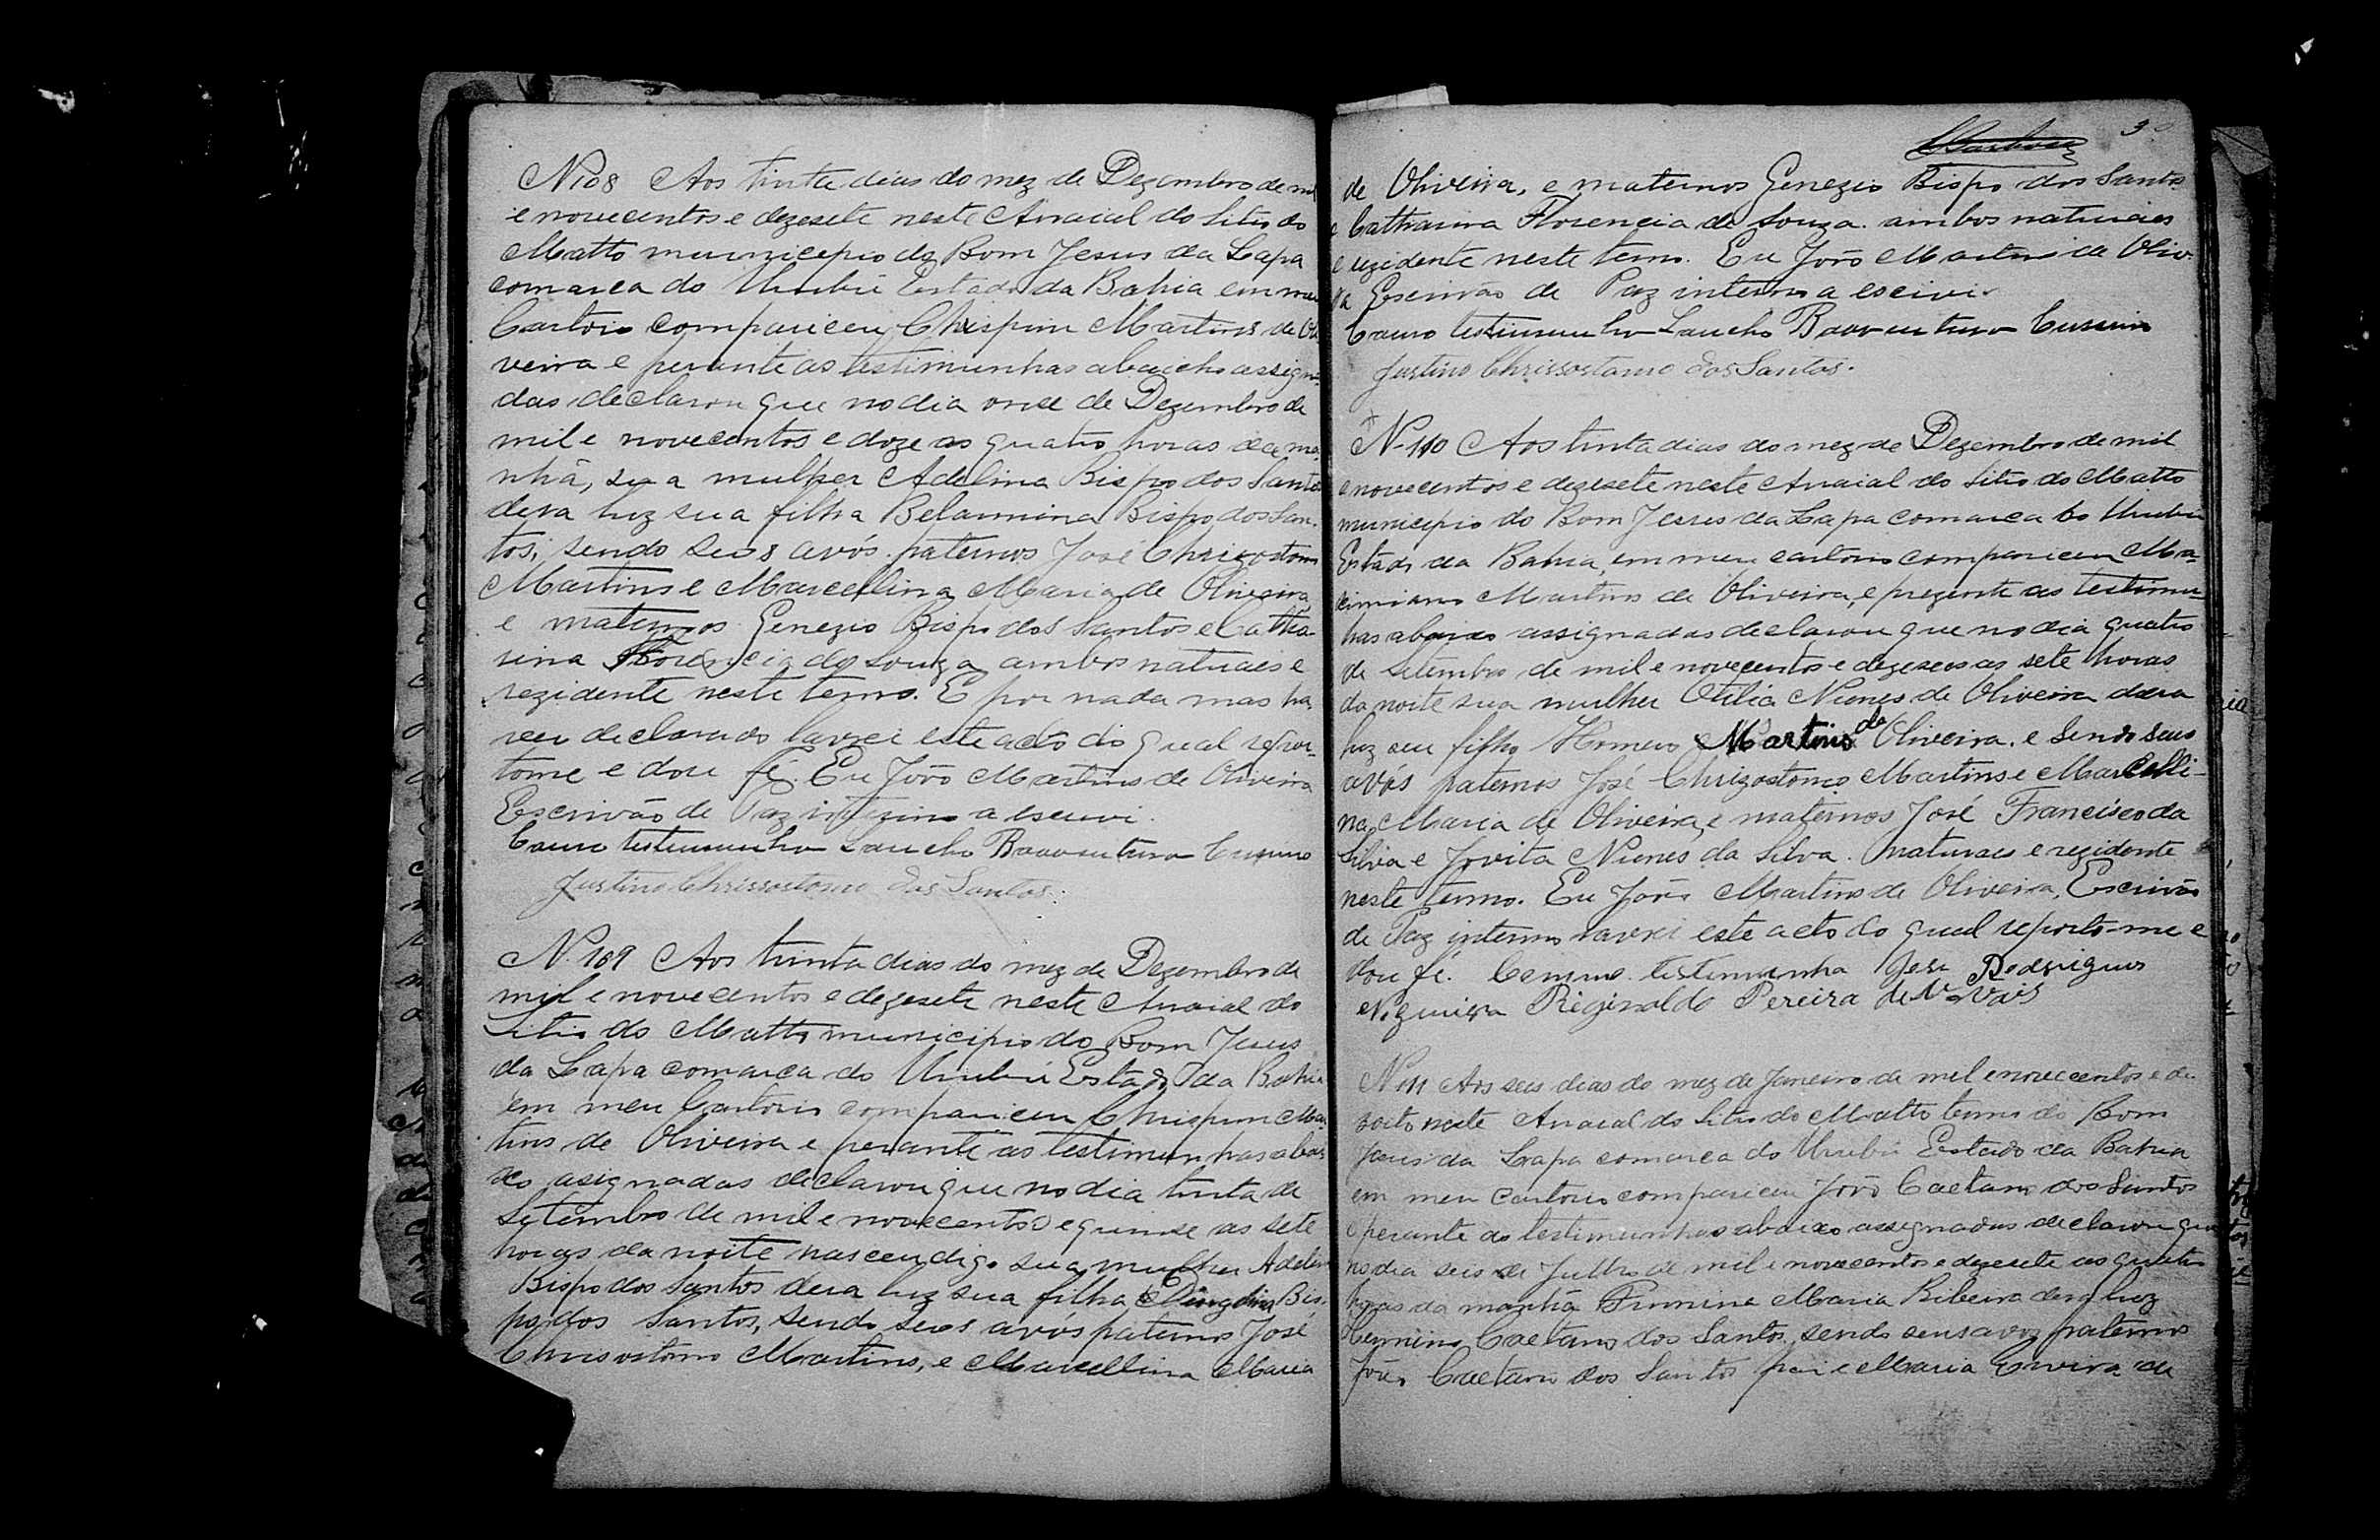 N 108 Aos trinta dias do mez de Dezembro de mil
e novecentos e dezesete neste Arraial do Sitio do
Matto municipio do Bom Jesus da Lapa
comarca do Urubú Estado da Bahia em meu
Cartorio compariceu Chrispim Martins de Oli
veira e perante as testimunhas abaicho assigna
das declarou que no dia onse de Dezembro de
mil e novecentos e doze as quatro horas da ma
nhã, sua mulher Adelina Bispo dos Santos
dera luz sua filha Belarmina Bispo dos San
tos; sendo seos avós paternos José Chrizostomo
Martins e Marcellina Maria de Oliveira
e maternos Genezio Bispo dos Santos e Catha
rina Florencia de Souza ambos naturaes e
rezidente neste termo. E por nada mas ha
ver declarado lavrei este acto do qual repor
tome e dou fé. Eu João Martins de Oliveira
Escrivão de Paz interino a escrevi.
Como testimunha Sancho Boaventura
Justino Chrissostomo dos Santos.
N. 109 Aos trinta dias do mez de Dezembro de
mil e novecentos e dezesete neste Arraial do
Sitio do Matto municipio do Bom Jesus
da Lapa comarca do Urubú Estado da Bahia
em meu Cartorio compariceu Chrispim Mar
tins de Oliveira e perante as testimunhas abai
xo asignadas declarou que no dia trinta de
Setembro de mil e novecentos e quinse as sete
horas da noite nasceu digo sua mulher Adelina
Bispo dos Santos dera luz sua filha Bis
po dos Santos, sendo seos avós paternos José
Chrisostomo Martins, e Marcellina Maria
3
de Oliveira, e maternos Genezio Bispo dos Santos
e Catharina Florencia de Souza. ambos naturaes
e rezidente neste termo. Eu João Martins de Olivei
ra Escrivão de Paz interino a escrivi
Como testimunho Sancho Boaventura
Justino Chrissostomo dos Santos.
N. 110 Aos trinta dias do mez de Dezembro de mil
e novecentos e dezesete neste Arraial do Sitio do Matto
municipio do Bom Jesus da Lapa comarca do Urubú
Estado da Bahia, em meu cartorio compariceu Ma-
cimiano Martins de Oliveira, e prezente as testimu-
has abaixo assignadas declarou que no dia quatro
de Setembro de mil e novecentos e dezeseis as sete horas
da noite sua mulher Otilia Nunes de Oliveira dera
luz seu filho Homero Martins de Oliveira. e sendo seus
avós paternos José Chrizostomo Martins e Marcelli-
na Maria de Oliveira, e maternos José Francisco da
Silva e Jovita Nunes da Silva. naturaes e rezidente
neste termo. Eu João Martins de Oliveira, Escrivão
de Paz interino lavrei este acto do qual reporto-me e
dou fé. Como testimunha Jose Rodrigues
Nogueira Riginaldo Pereira de
N 111 Aos seis dias do mez de Janeiro de mil e novecentos e de
soito neste Arraial do Sitio do Matto termo do Bom
Jesus da Lapa comarca do Urubú Estado da Bahia
em meu cartorio compariceu João Caetano dos Santos
e perante as testimunhas abaixo assignadas declarou que
no dia seis de Julho de mil e novecentos e dezesete as quatro
horas da manhã Firmina Maria Ribeira dera luz
Caetano dos Santos, sendo seus avoz paternos
João Caetano dos Santos pai e Maria de